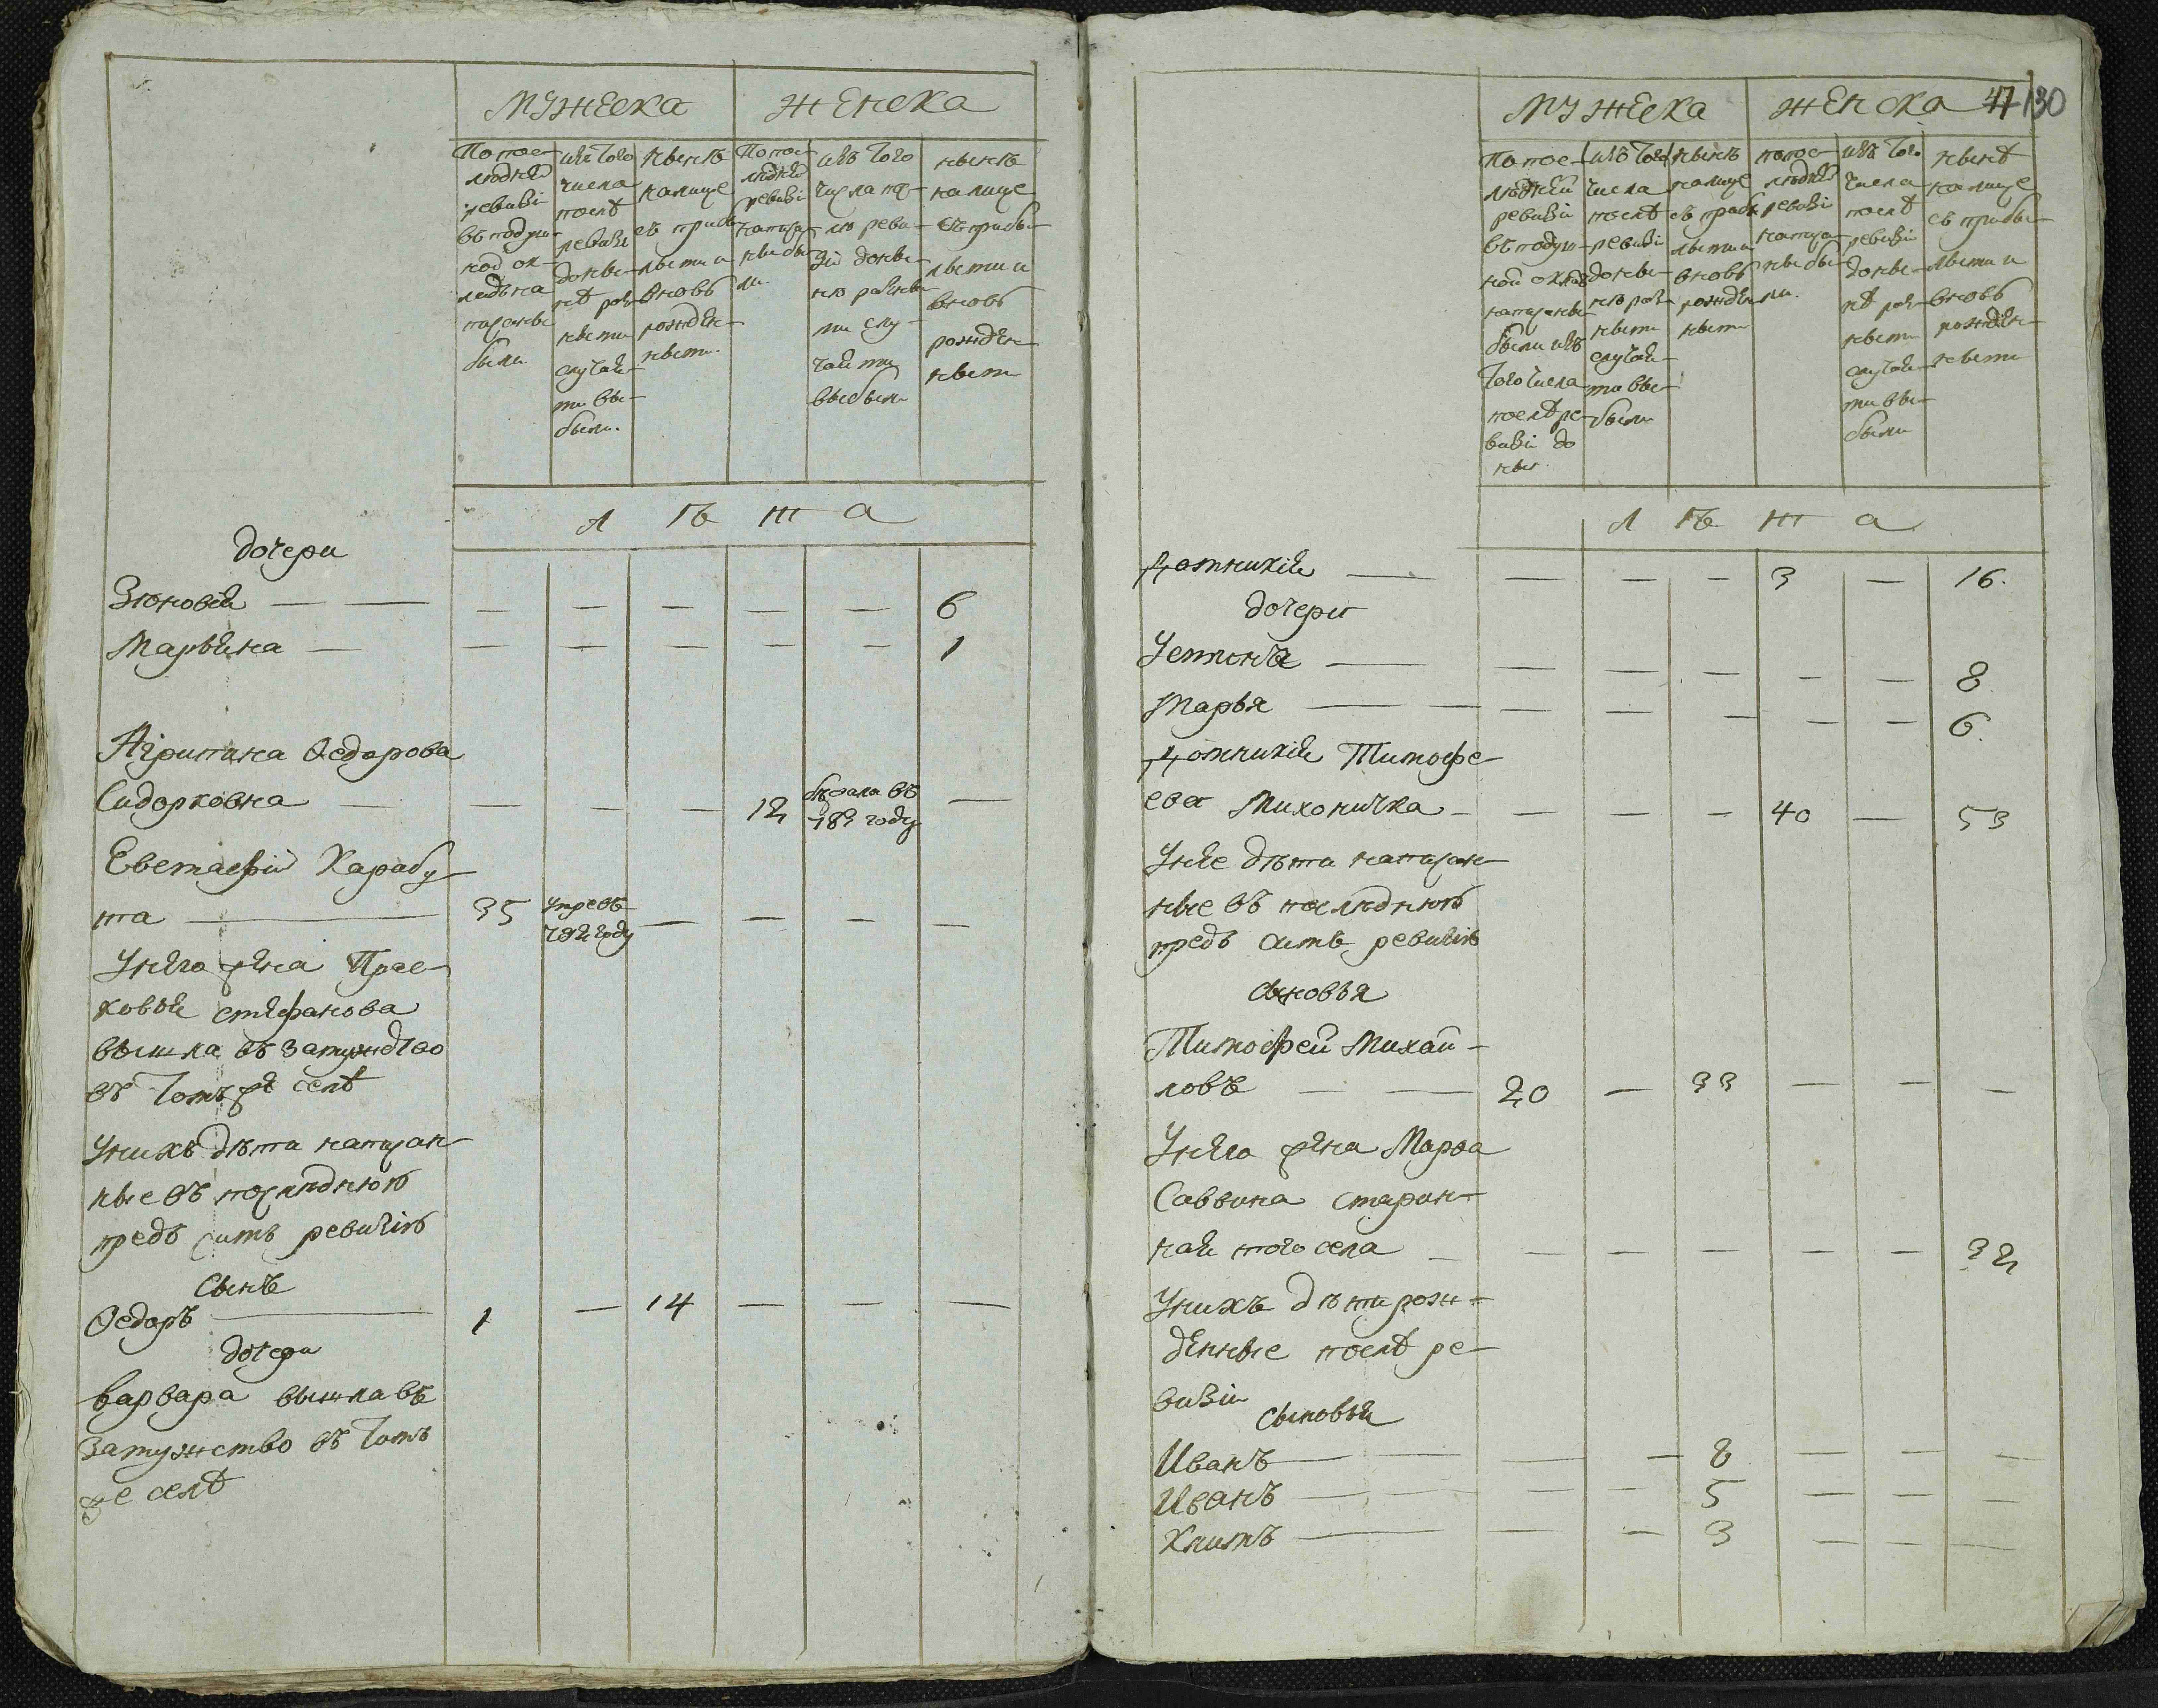 Мужеска
женска
По пос-
лѣдней
ревизіи
въ подуш-
ной ок-
ладъ на
писаны
были.
изъ того
числа
послѣ
ревизіи
до ны-
нѣ раз-
ными
случая-
ми вы-
были.
нынѣ
на лице
съ прибы-
лыми и
вновь
рожден-
ными.
По пос-
лѣдней
ревизіи
написа-
ны бы-
ли.
изъ того
числа по-
слѣ реви-
зіи до ны-
нѣ разны-
ми слу-
чаями
выбыли
нынѣ
на лице
съ прибы-
лыми и
вновь
рожден-
ными
Л ѣ т а
дочери
Зѣновея — — — — — — — 6
Марѣяна — — — — — — 1
Агрипина Ѳедорова
Сидорковна — — — — 12 бѣжала въ —
787 году
Евстафій Карабу-
та — 35 умре въ — — — —
792 году
У него жена Прас-
ковья Стефанова
вышла въ замужство
въ томъ же селѣ
У нихъ дѣти написан-
ные въ послѣднюю
предъ симъ ревизію
Сынъ
Ѳедоръ — 1 — 14 — — —
дочери
Варвара вышла въ
замужство въ томъ
же селѣ
Мужеска
женска
47 130
По пос-
лѣдней
ревизіи
въ подуш-
ной окладъ
написаны
были изъ
того числа
послѣ ре-
визіи до
нын.
изъ того
числа
послѣ
ревизіи
до ны-
нѣ раз-
ными
случая-
ми вы-
были
нынѣ
на лице
съ прибы-
лыми и
вновь
рожден-
ными
по пос-
лѣдней
ревизіи
написа-
ны бы-
ли.
изъ того
числа
послѣ
ревизіи
до ны-
нѣ раз-
ными
случая-
ми вы-
были
нынѣ
на лице
съ прибы-
лыми и
вновь
рожден-
ными
Л ѣ т а
Домникія — — — — 3 — 16.
дочери
Устинья — — — — — — 8.
Марья — — — — — — — 6.
Домникія Тимофе-
ева Михоничка — — — — 40 — 53
У нее дѣти написан-
ные въ послѣднюю
предъ симъ ревизію
Сыновья
Тимофей Михай-
ловъ — — 20 — 33 — — —
У него жена Марѳа
Саввина старин-
ная того села — — — — — — 32
У нихъ дѣти рож-
денные послѣ ре-
визіи
Сыновья
Иванъ — — — — 8 — — —
Иванъ — — — — 5 — — —
Климъ — — — 3 — — —